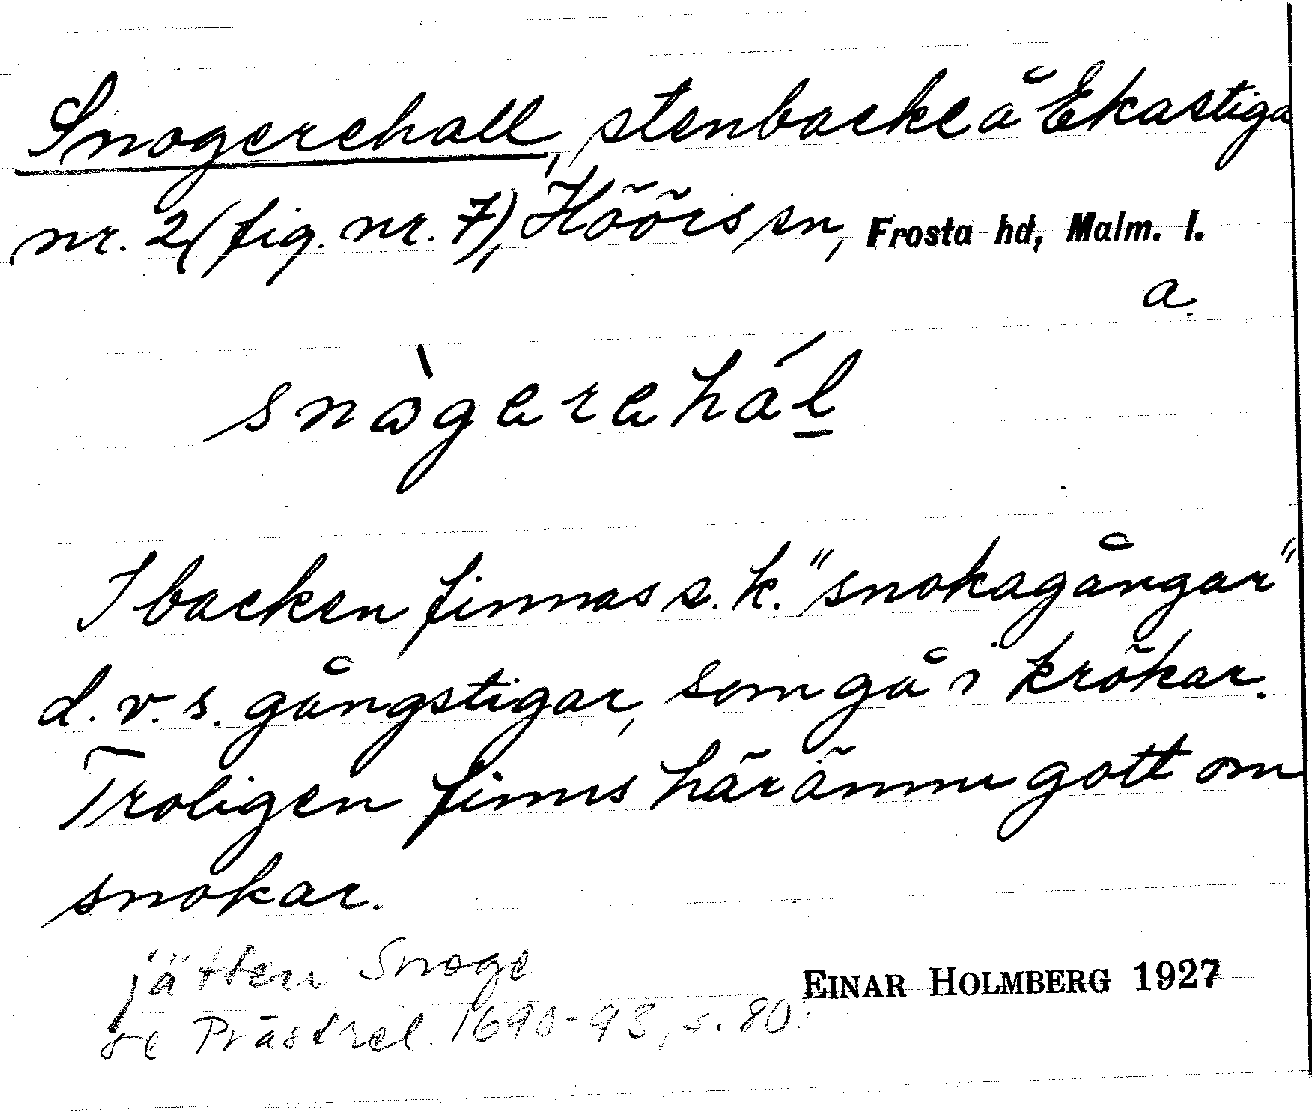 Snogerehall, stenbacke å Ekastiga
nr. 2 (fig. nr. 7), Höörs sn, Frosta hd, Malm. l.
a.
snògerehál
I backen finnas s. k. "snokagångar"
d. v. s. gångstigar, som gå i krökar.
Troligen finns här ännu gott om
snokar.
jätten Snoge
se Prästrel. 1690-93, s. 80.
EINAR HOLMBERG 1927